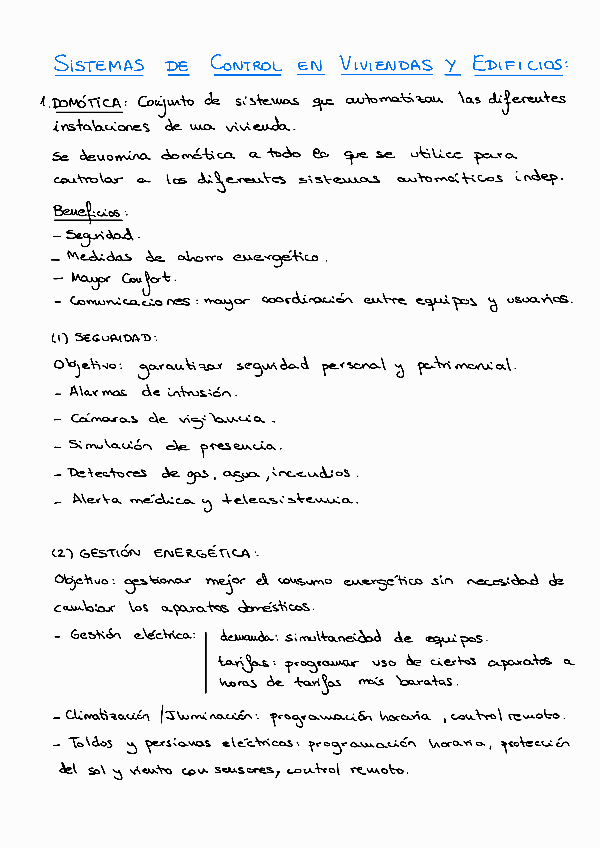 SISTEMAS DE CONTROL EN VIVIENDAS Y EDIFICIOS:
1. DOMÓTICA: Conjunto de sistemas que automatizan las diferentes
instalaciones de una vivienda.
Se denomina domótica a todo lo que se utilice para
controlar a los diferentes sistemas automáticos indep.
Beneficios:
- Seguridad.
- Medidas de ahorro energético.
- Mayor Confort.
- Comunicaciones: mayor coordinación entre equipos y usuarios.
(1) SEGURIDAD:
Objetivo: garantizar seguridad personal y patrimonial.
- Alarmas de intrusión.
- Cámaras de vigilancia.
- Simulación de presencia.
- Detectores de gas, agua, incendios.
- Alerta médica y teleasistencia.
(2) GESTIÓN ENERGÉTICA:
Objetivo: gestionar mejor el consumo energético sin necesidad de
cambiar los aparatos domésticos.
- Gestión eléctrica: demanda: simultaneidad de equipos.
tarifas: programar uso de ciertos aparatos a
horas de tarifas más baratas.
- Climatización / Iluminación: programación horaria, control remoto.
- Toldos y persianas eléctricas: programación horaria, protección
del sol y viento con sensores, control remoto.